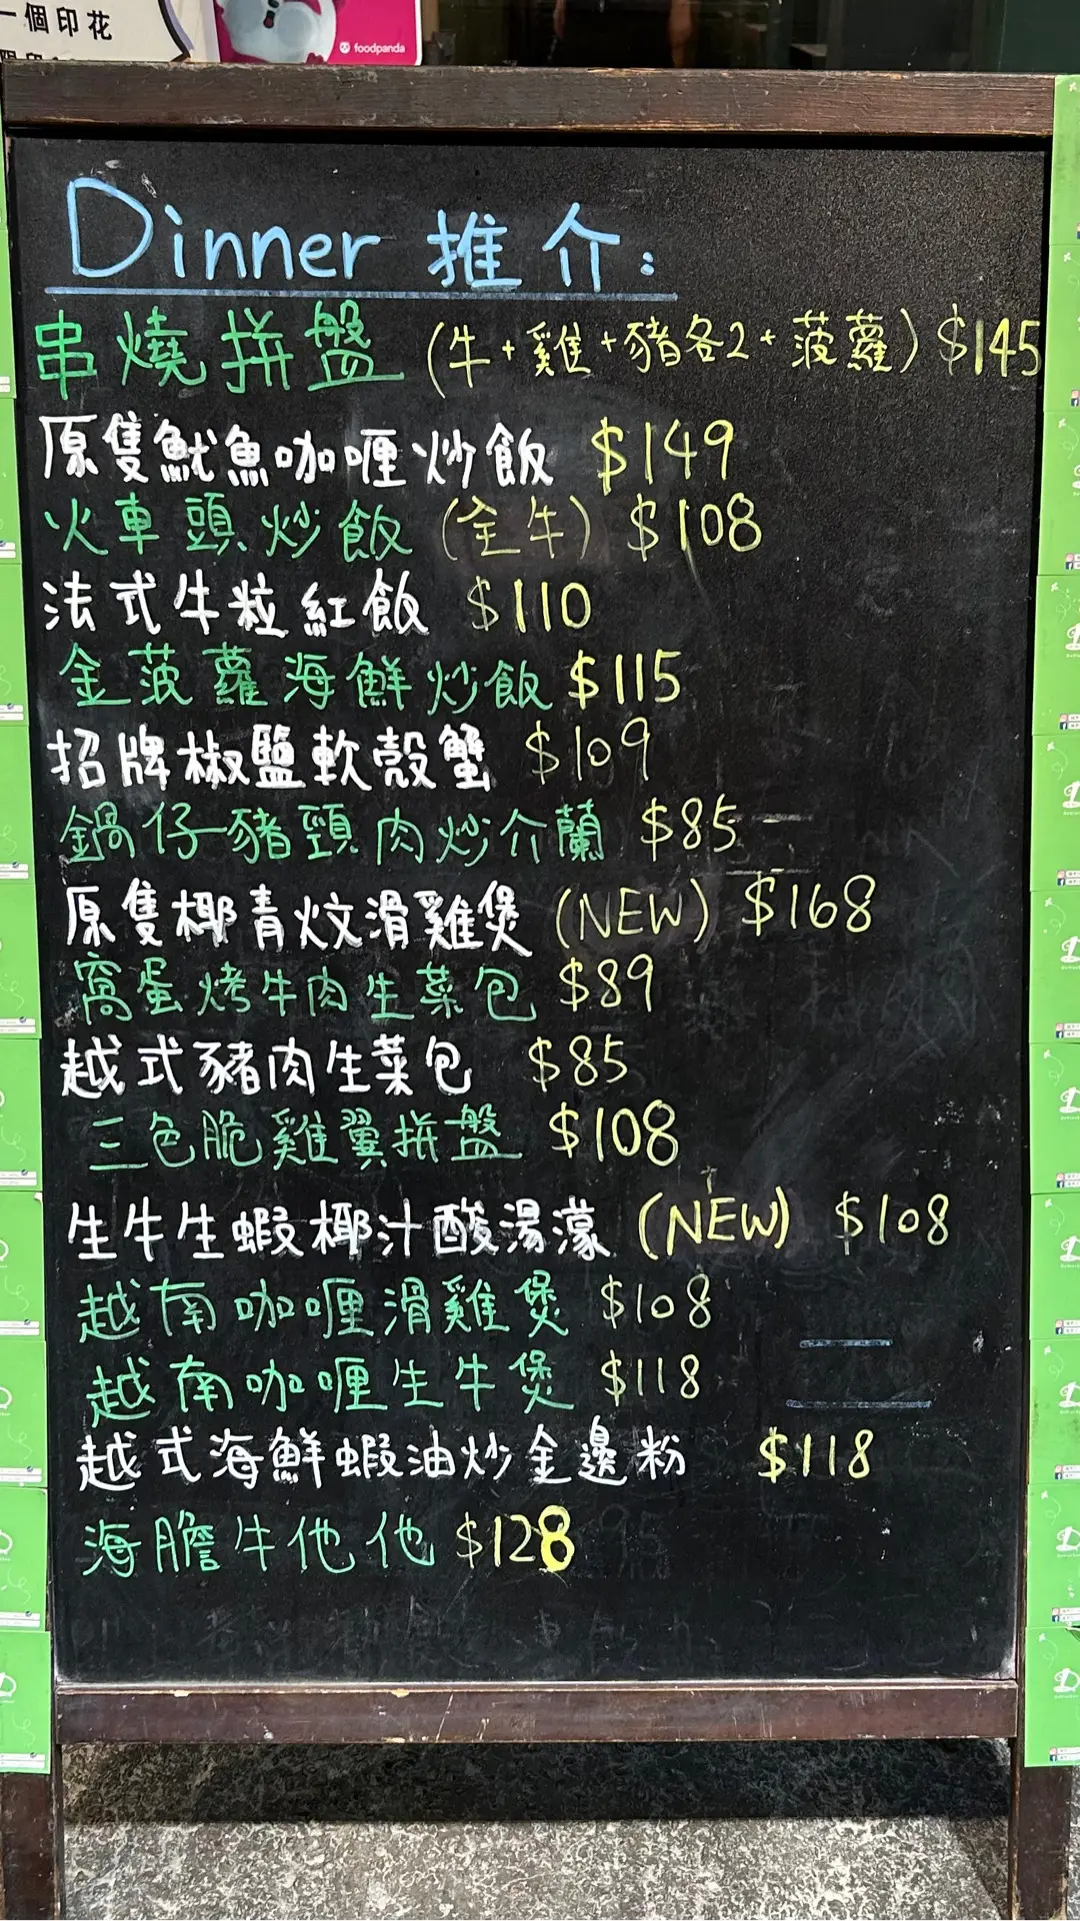 一個印花
foodpanda
Dinner 推介:
串燒拼盤 (牛+雞+豬各2+菠蘿) $145
原隻魷魚咖喱炒飯 $149
火車頭炒飯 (全牛) $108
法式牛粒紅飯 $110
金菠蘿海鮮炒飯 $115
招牌椒鹽軟殼蟹 $109
鍋仔豬頸肉炒介蘭 $85
原隻椰青炆滑雞煲 (NEW) $168
窩蛋烤牛肉生菜包 $89
越式豬肉生菜包 $85
三色脆雞翼拼盤 $108
生牛生蝦椰汁酸湯濛 (NEW) $108
越南咖喱滑雞煲 $108
越南咖喱生牛煲 $118
越式海鮮蝦油炒金邊粉 $118
海膽牛他他 $128